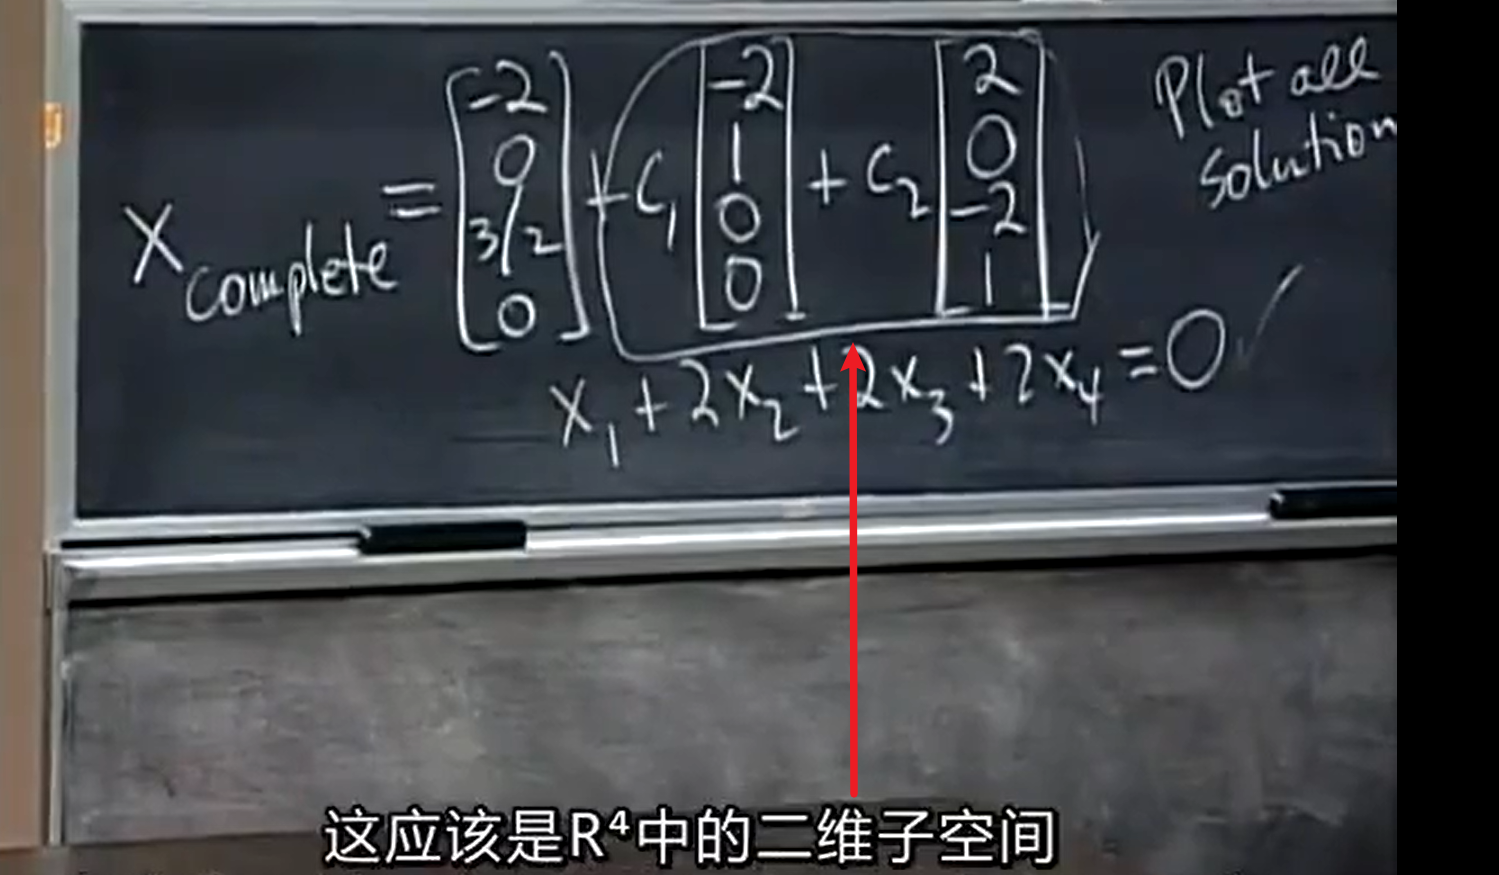 X complete = [-2 0 3/2 0] + c₁ [-2 1 0 0] + c₂ [2 0 -2 1]
Plot all
solution
x₁ + 2x₂ + 2x₃ + 2x₄ = 0 ✓
这应该是R⁴中的二维子空间